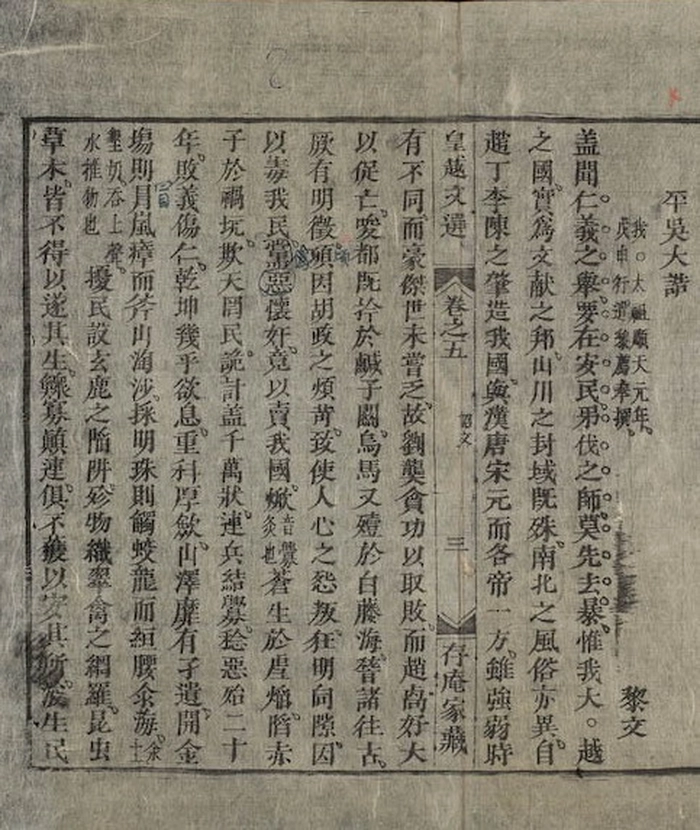 平吳大誥
我○太祖順天元年
戊申行遣黎廌奉撰 黎文
盖聞仁義之舉要在安民弔伐之師莫先去暴惟我大○越
之國實爲文献之邦山川之封域既殊南北之風俗亦異自
趙丁李陳之肇造我國與漢唐宋元而各帝一方雖強弱時
皇越文選 卷之五 詔文 三 存庵家藏
有不同而豪傑世未嘗乏故劉龑貪功以取敗而趙卨好大
以促亡唆都既擒於鹹子關烏馬又殪於白藤海嵇諸往古
厥有明徵頃因胡政之煩苛致使人心之怨叛狂明伺隙因
以毒我民黨惡懷奸竟以賣我國焮音釁灸也蒼生於虐熖陷赤
子於禍坑欺天罔民詭計盖千萬狀連兵結釁稔惡殆二十
年敗義傷仁乾坤幾乎欲息重科厚斂山澤靡有孑遺開金
塲則冐嵐瘴而斧山淘沙採明珠則觸蛟龍而縆腰汆海汆土
墾奴吞上聲水推物也擾民設玄鹿之陷阱殄物織翠禽之網羅昆虫
草木皆不得以遂其生鰥寡顛連俱不獲以安其所浚生民